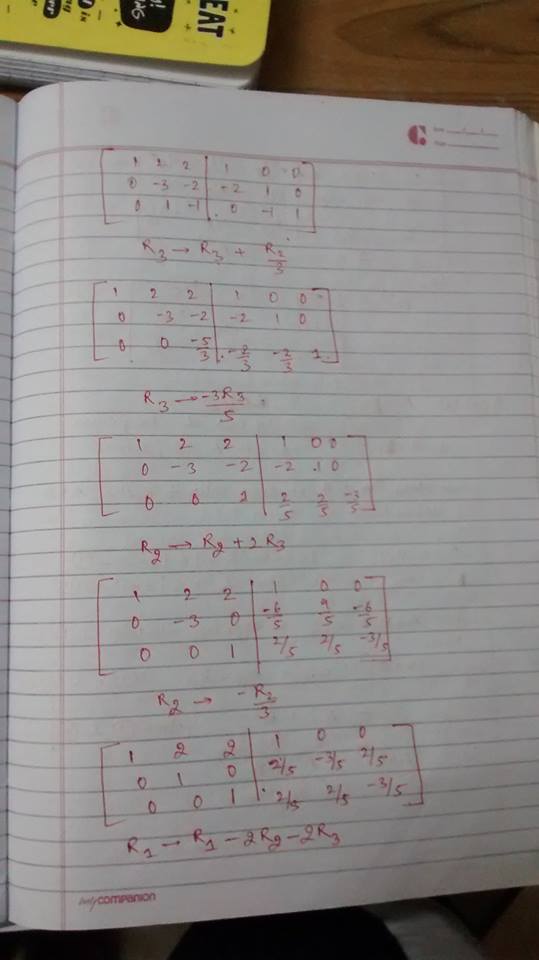 EAT
1 2 2 | 1 0 0
0 -3 -2 | -2 1 0
0 1 -1 | 0 -1 1
R3 → R3 + R2/3
1 2 2 | 1 0 0
0 -3 -2 | -2 1 0
0 0 -5/3 | -2/3 -2/3 1
R3 → -3R3/5
1 2 2 | 1 0 0
0 -3 -2 | -2 1 0
0 0 1 | 2/5 2/5 -3/5
R2 → R2 + 2R3
1 2 2 | 1 0 0
0 -3 0 | -6/5 9/5 -6/5
0 0 1 | 2/5 2/5 -3/5
R2 → -R2/3
1 2 2 | 1 0 0
0 1 0 | 2/5 -3/5 2/5
0 0 1 | 2/5 2/5 -3/5
R1 → R1 - 2R2 - 2R3
COMPANION